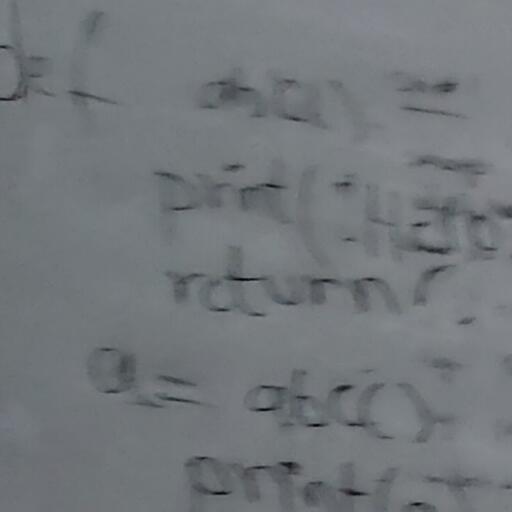 def abc():
print("Hello
return
a = abc()
print(